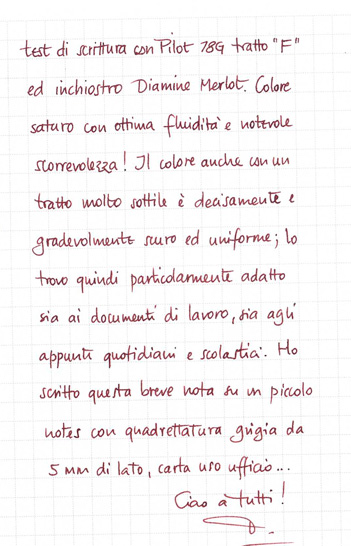 test di scrittura con Pilot 78G tratto "F"
ed inchiostro Diamine Merlot. Colore
saturo con ottima fluidità e notevole
scorrevolezza! Il colore anche con un
tratto molto sottile è decisamente e
gradevolmente scuro ed uniforme; lo
trovo quindi particolarmente adatto
sia ai documenti di lavoro, sia agli
appunti quotidiani e scolastici. Ho
scritto questa breve nota su un piccolo
notes con quadrettatura grigia da
5 mm di lato, carta uso ufficio...
Ciao a tutti!